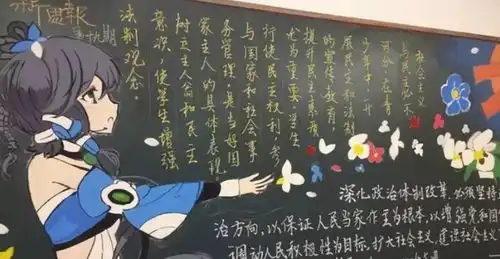 第九期
社会主义
与民主密不
可分,在青
少年中,开
展民主和法制
的宣传教育,
提升民主素养
尤为重要,学生
行使民主权利,参
与国家和社会事
务管理,是当好国
家主人的具体表现
树立主人翁和民主
意识,使学生增强
法制观念。
深化政治体制改革,必须坚持
治方向,以保证人民当家作主为根本,以增强党和国
调动人民积极性为目标,扩大社会主义,建设社会主义